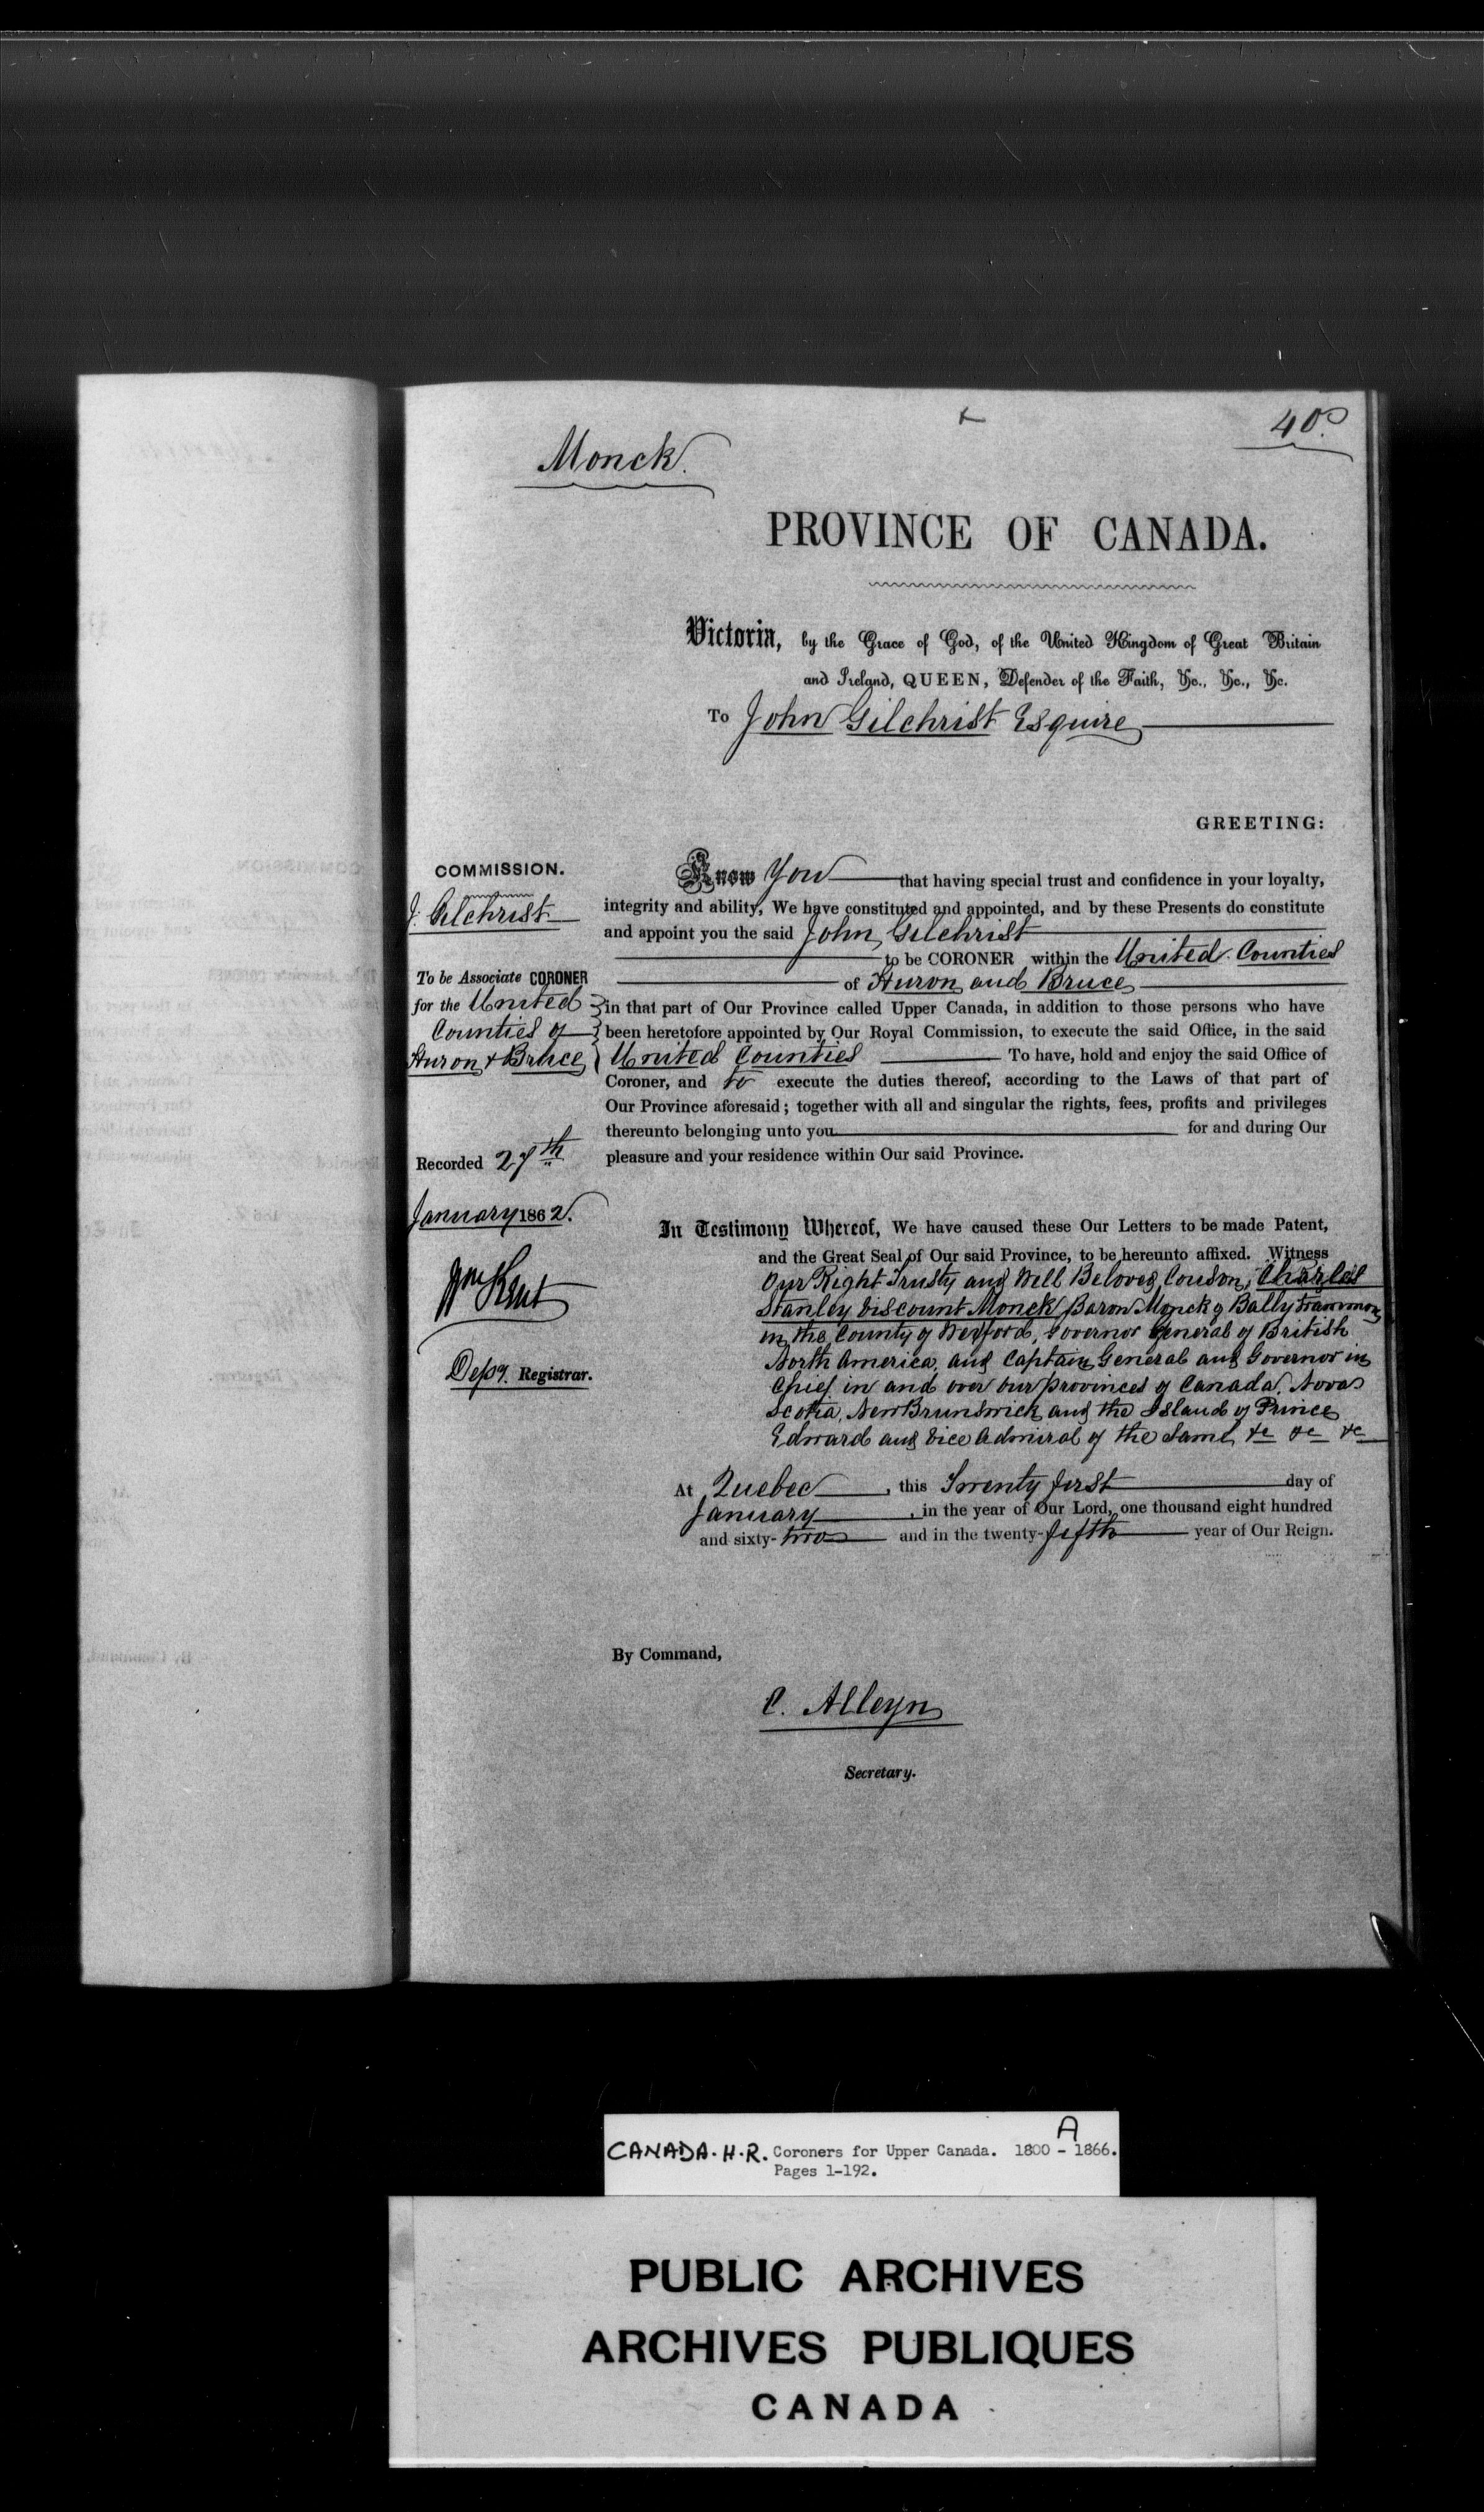 40.
Monck.
PROVINCE OF CANADA.
Victoria, by the Grace of God, of the United Kingdom of Great Britain
and Ireland, QUEEN, Defender of the Faith, &c., &c., &c.
To John Gilchrist Esquire
GREETING:
COMMISSION.
J. Gilchrist
To be Associate CORONER
for the United
Counties of
Huron & Bruce
Recorded 27th
January 1862.
Wm Kent
Depy. Registrar.
Know You that having special trust and confidence in your loyalty,
integrity and ability, We have constituted and appointed, and by these Presents do constitute
and appoint you the said John Gilchrist
to be CORONER within the United Counties
of Huron and Bruce
in that part of Our Province called Upper Canada, in addition to those persons who have
been heretofore appointed by Our Royal Commission, to execute the said Office, in the said
United Counties To have, hold and enjoy the said Office of
Coroner, and to execute the duties thereof, according to the Laws of that part of
Our Province aforesaid; together with all and singular the rights, fees, profits and privileges
thereunto belonging unto you for and during Our
pleasure and your residence within Our said Province.
In Testimony Whereof, We have caused these Our Letters to be made Patent,
and the Great Seal of Our said Province, to be hereunto affixed. Witness
Our Right Trusty and Well Beloved Cousin, Charles
Stanley Viscount Monck Baron Monck of Ballytrammon
in the County of Wexford, Governor General of British
North America, and Captain General and Governor in
Chief in and over our Provinces of Canada, Nova
Scotia, New Brunswick and the Island of Prince
Edward and Vice Admiral of the Same &c &c &c
At Quebec, this Twenty first day of
January, in the year of Our Lord, one thousand eight hundred
and sixty-two and in the twenty-fifth year of Our Reign.
By Command,
C. Alleyn
Secretary.
A
CANADA. H.R. Coroners for Upper Canada. 1800 - 1866.
Pages 1-192.
PUBLIC ARCHIVES
ARCHIVES PUBLIQUES
CANADA